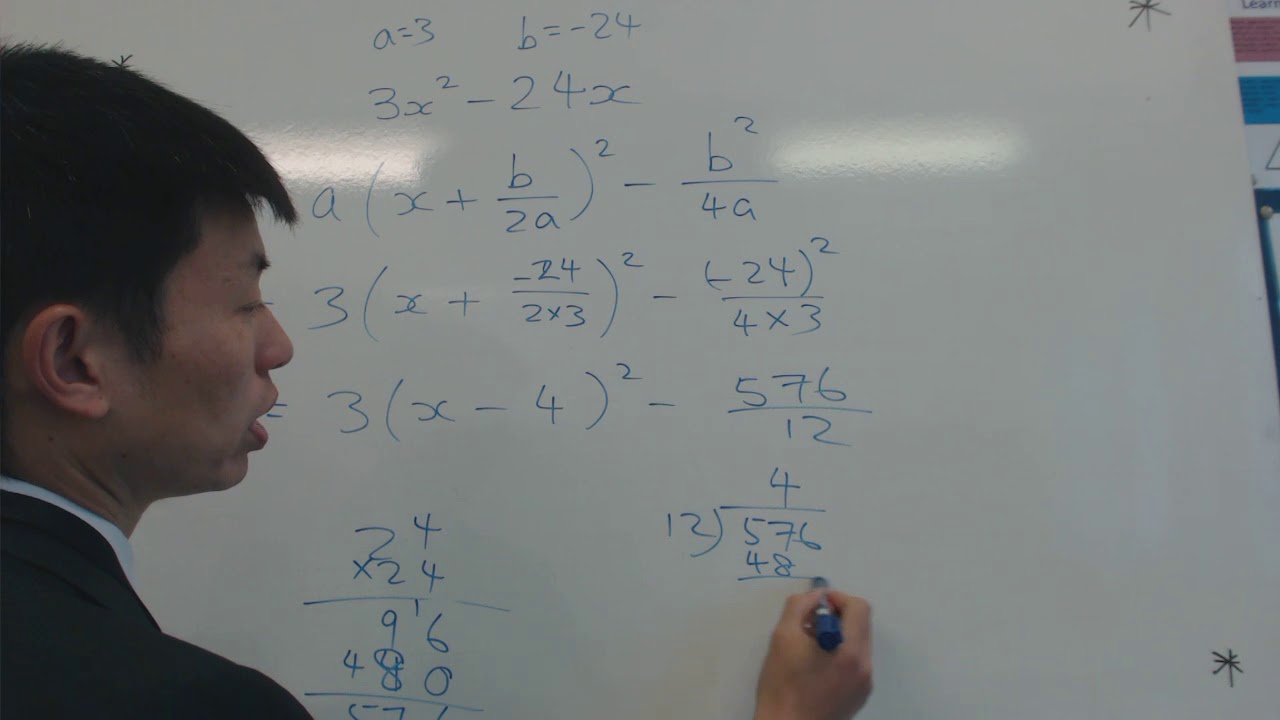 a=3 b=-24
3x² - 24x
a(x + b/2a)² - b²/4a
= 3(x + -24/2×3)² - (-24)²/4×3
= 3(x - 4)² - 576/12
4
12)576
48
24
×24
1
96
480
576
Learn